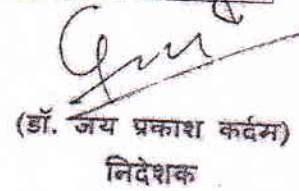 (डॉ. जय प्रकाश कर्दम)
निदेशक